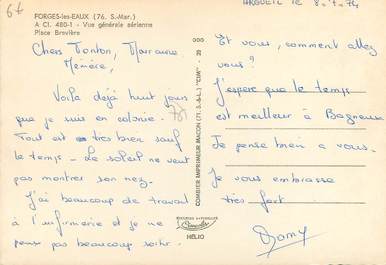 6f
FORGES-les-EAUX (76. S.-Mar.)
A Cl. 480-1 - Vue générale aérienne
Place Brevière
ARGUEIL le 8.7.74
Chers Tonton, Marraine
Mémère,
Voila déjà huit jours
que je suis en colonie.
Tout est très bien sauf
le temps - Le soleil ne veut
pas montrer son nez.
J'ai beaucoup de travail
à l'infirmerie et je ne
pense pas beaucoup sortir.
COMBIER IMPRIMEUR MACON (71. S.-&-L.) "CIM"
Combier
HÉLIO
Et vous, comment allez
vous?
J'espère que le temps
est meilleur à Bagneux
Je pense bien a vous.
Je vous embrasse
très fort